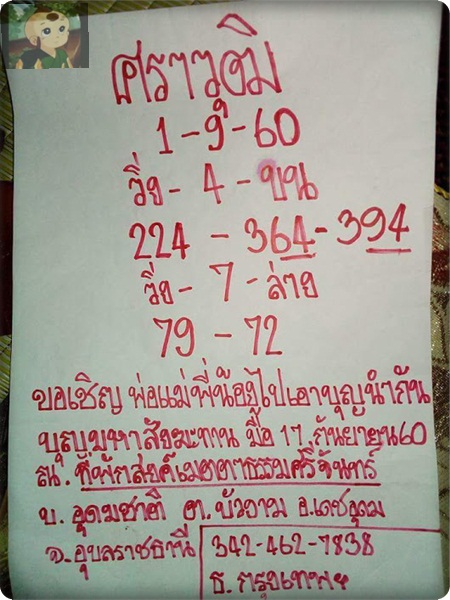 ศราวุฒิ
1-9-60
วิ่ง - 4 - บน
224 - 364 - 394
วิ่ง - 7 - ล่าง
79 - 72
ขอเชิญ พ่อแม่พี่น้องไปเอาบุญนำกัน
บุญมหาสังฆทาน มื้อ 17 กันยายน 60
ณ. ที่พักสงฆ์เมตตาธรรมศรีจันทร์
บ. อุดมชาติ ต. บัวงาม อ. เดชอุดม
จ. อุบลราชธานี
342-462-7838
ธ. กรุงเทพฯ